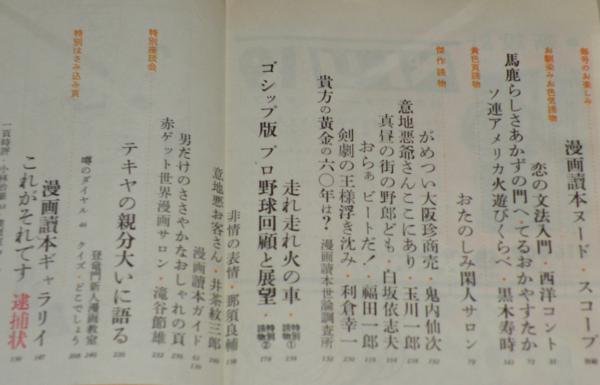 毎号のお楽しみ
漫画讀本ヌード・スコープ
お馴染みお色気読物
恋の文法入門・西洋コント
馬鹿らしさあかずの門へ・てるおかやすたか
ソ連アメリカ火遊びくらべ・黒木寿時
黄色頁読物
おたのしみ閑人サロン
傑作読物
がめつい大阪珍商売・鬼内仙次
意地悪爺さんここにあり・玉川一郎
真昼の街の野郎ども・白坂依志夫
おらぁビートだ!・福田一郎
剣劇の王様浮き沈み・利倉幸一
貴方の黃金の六〇年は? 漫画讀本世論調査所
走れ走れ火の車・特別読物①
ゴシップ版 プロ野球回顧と展望・特別読物②
非情の表情・那須良輔
意地悪お客さん・井茶紋三郎
漫画讀本ガイド
男だけのささやかなおしゃれの頁
赤ゲット世界漫画サロン・滝谷節雄
特別座談会
テキヤの親分大いに語る
登竜門新人漫画教室
噂のダイヤル クイズ・どこでしょう
特別はさみ込み頁
漫画讀本ギャラリイ
これがそれです 逮捕状
一頁時評・小林治雄